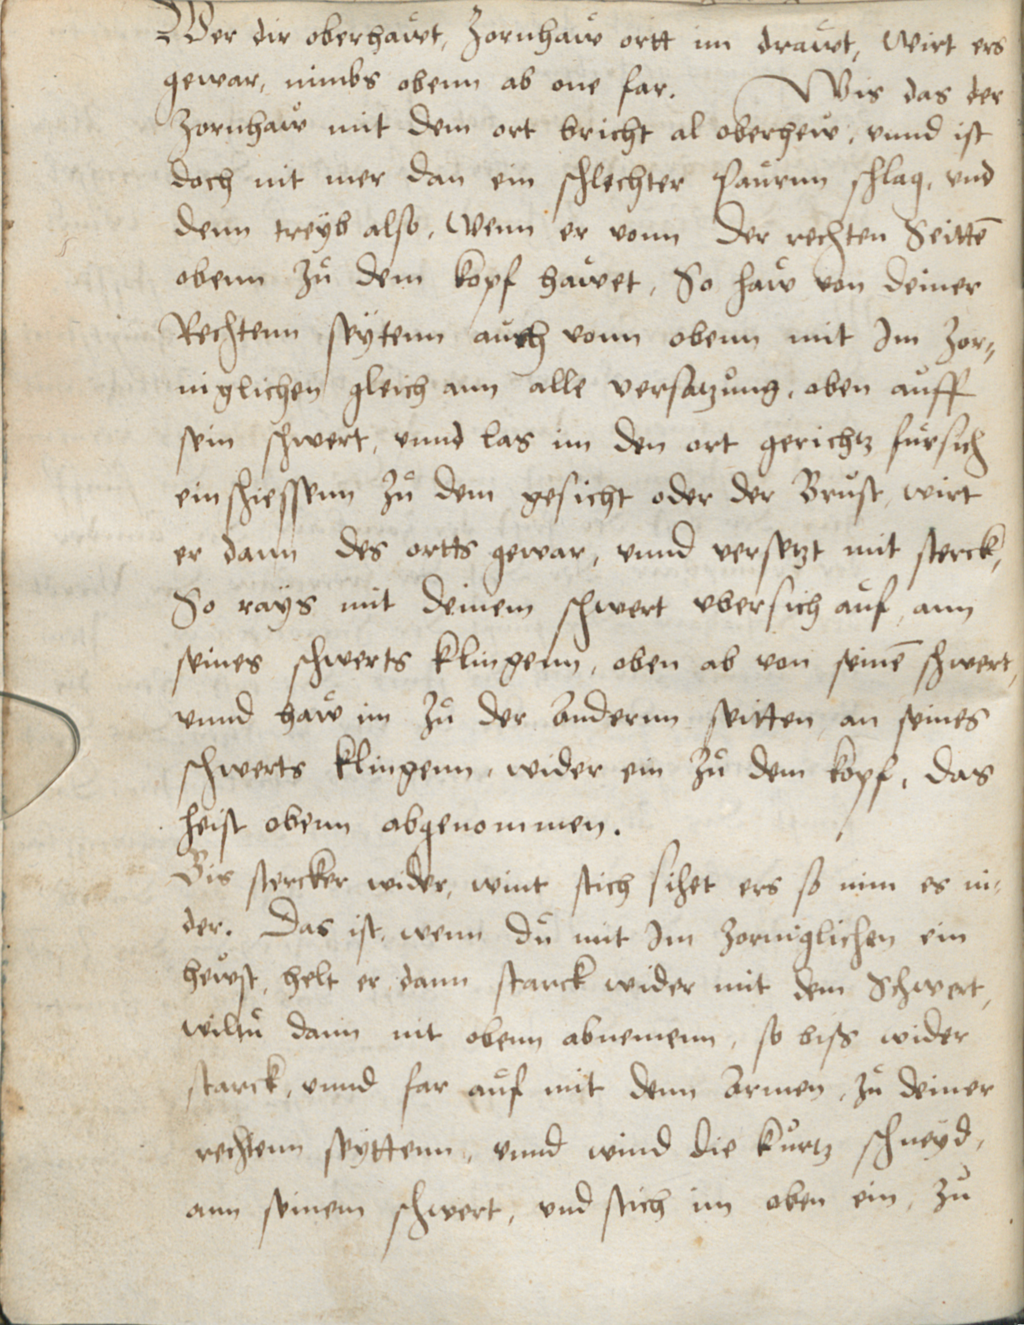 Wer dir oberhawt, Zornhaw ortt im drawt, Wirt ers
gewar, nimbs obenn ab one far. Wis das der
Zornhaw mit dem ort bricht al oberhew, vnnd ist
doch nit mer dan ein schlechter paurnn schlag, vnd
denn treyb also, Wenn er vonn der rechten Seittē
obenn zů dem kopf hawet, So haw von deiner
Rechtenn seytenn auch vonn obenn mit Im Zor=
niglichen gleich ann alle versatzung, oben auff
sein schwert, vnnd las im den ort gerichtz fursich
einschiessenn zů dem gesicht oder der Brust, wirt
er dann des ortts gewar, vnnd versetzt mit sterck,
So rays mit deinem schwert vbersich auf, ann
seines schwerts klingenn, oben ab von seinē schwert,
vnnd haw im zů der Andernn seitten, an seines
schwerts klingenn, wider ein zů dem kopf, das
heist obenn abgenommen.
Bis stercker wider, wint stich sihet ers so nim es ni=
der. Das ist, wenn du mit Im zorniglichen ein
hewst, helt er dann starck wider mit dem Schwert,
wiltu dann nit obenn abnemenn, so biss wider
starck, vnnd far auf mit denn Armen, zů deiner
rechtenn seyttenn, vnnd wind die kurtz schneyd,
ann seinem schwert, vnd stich im oben ein, zů